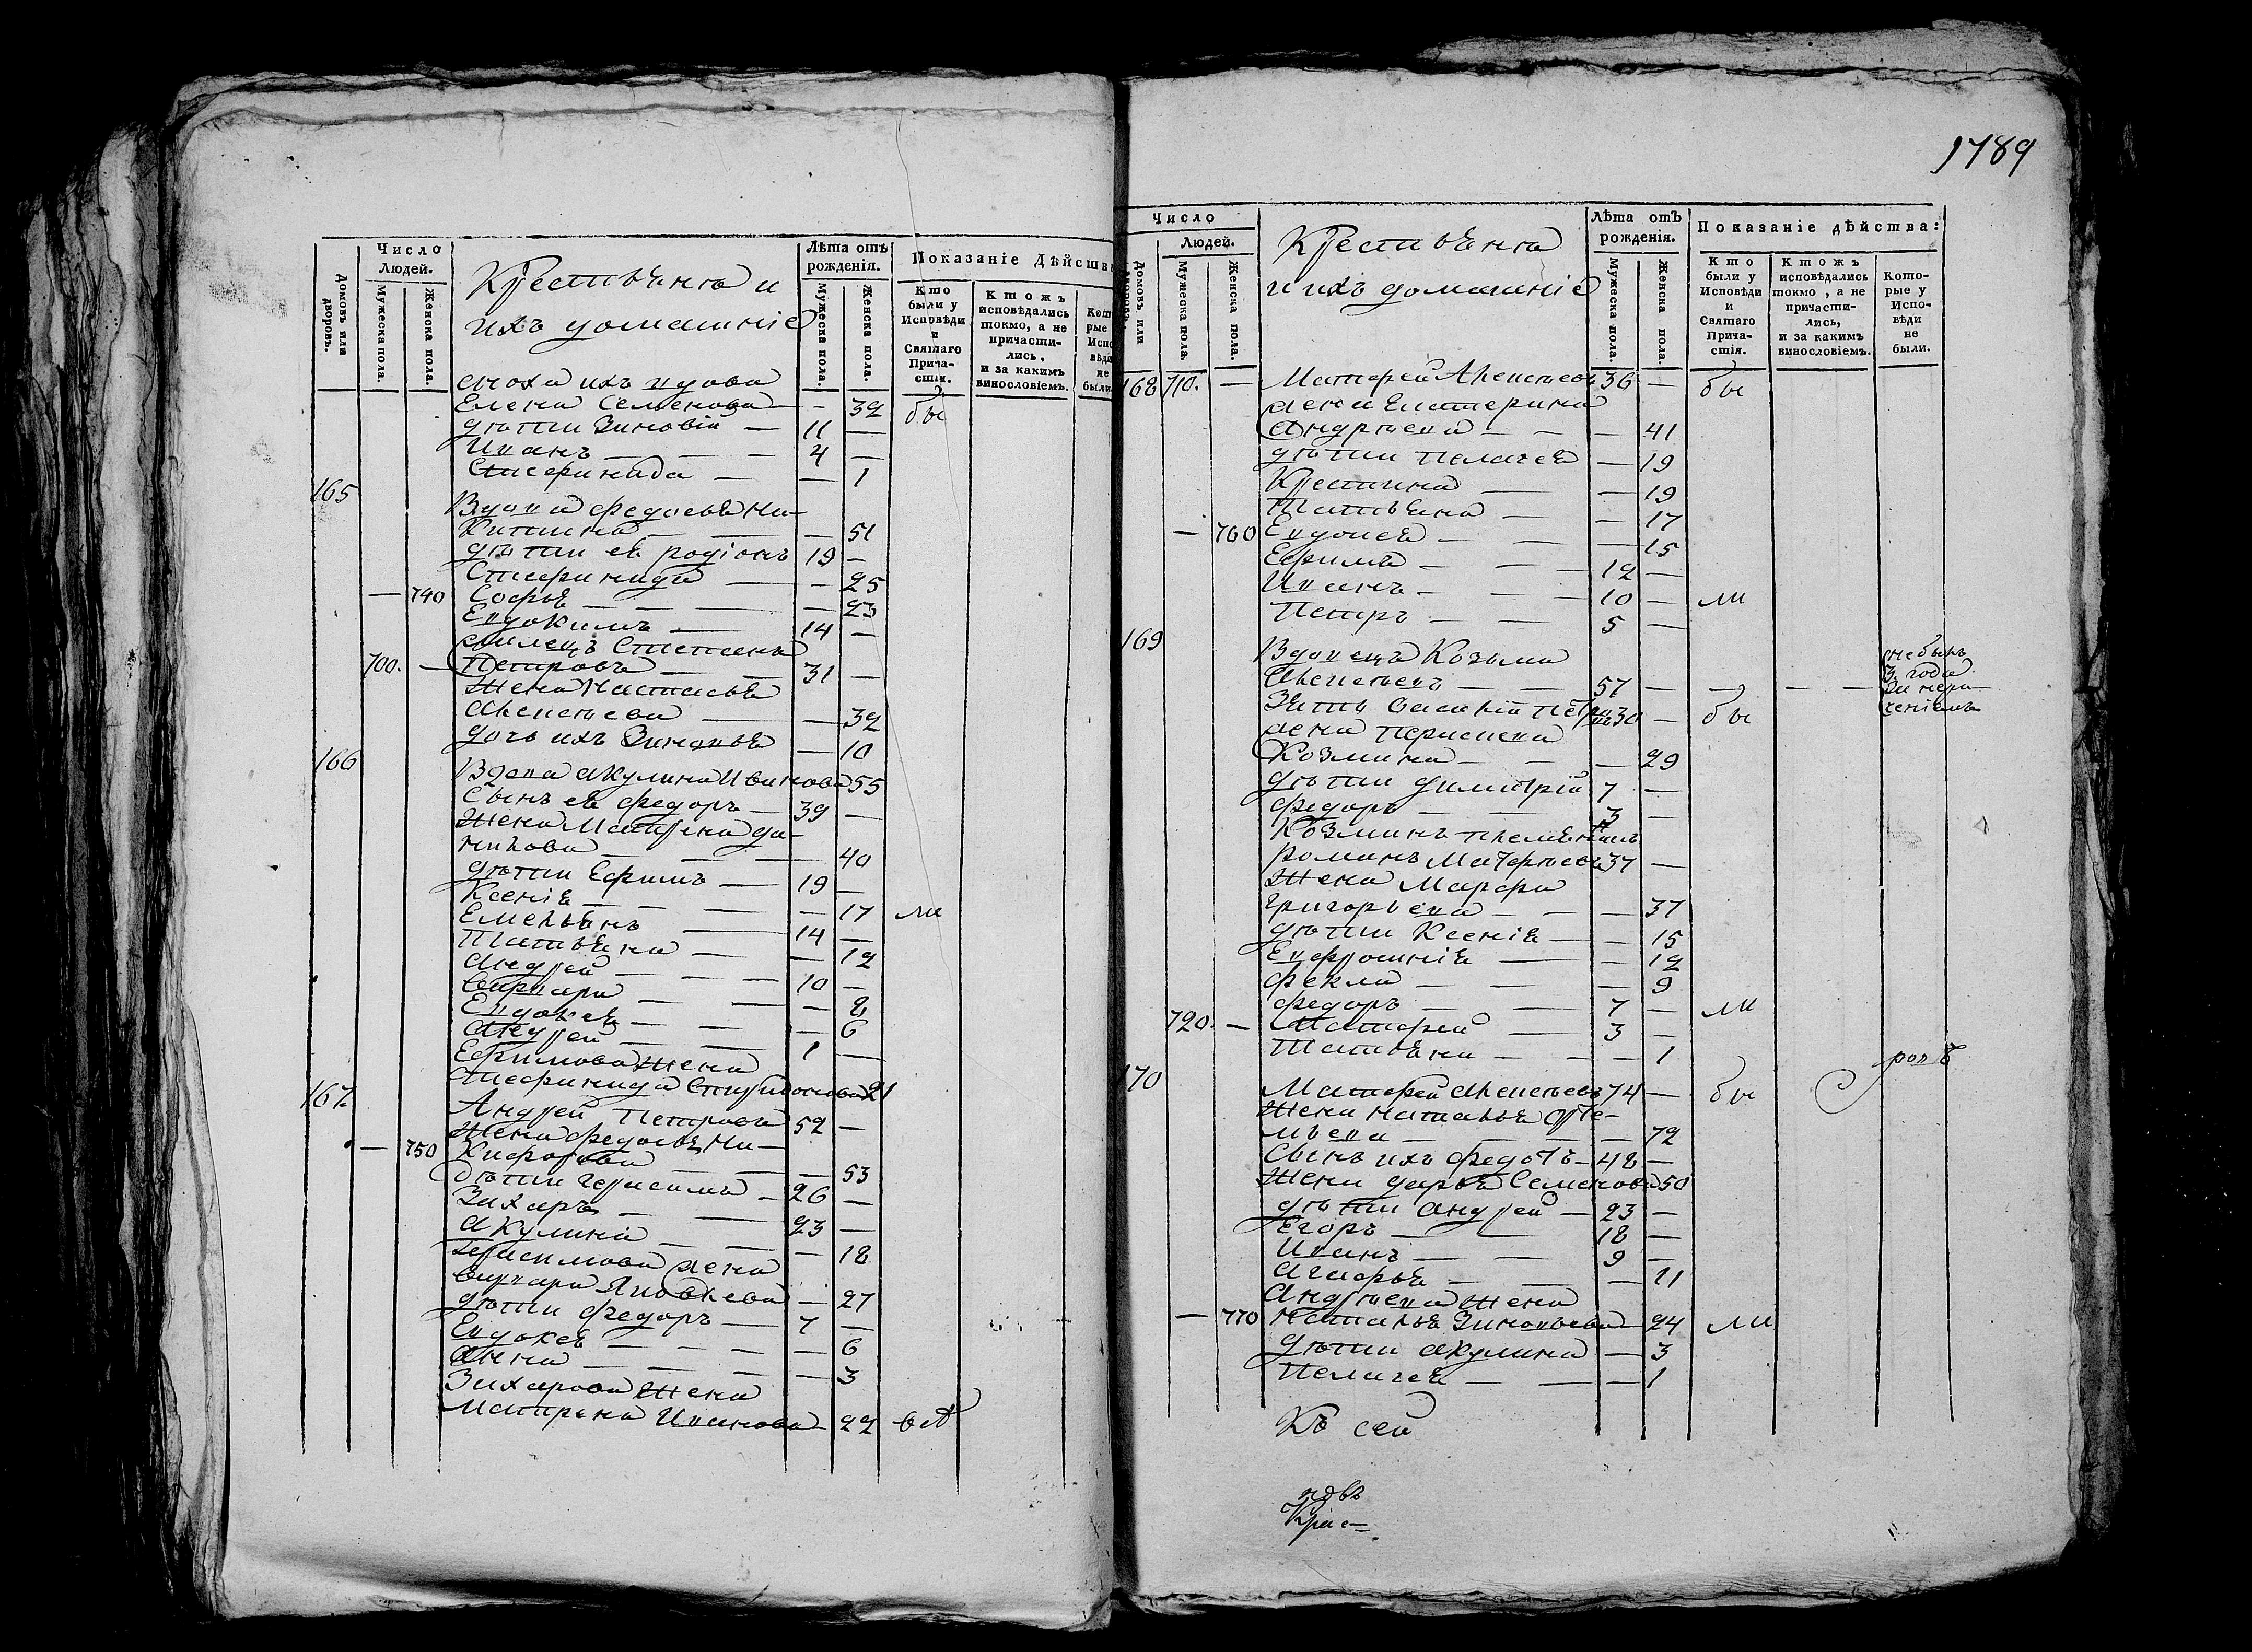 Число
Людей.
Домовъ или дворовъ.
Мужеска пола.
Женска пола.
Крестьяня и
ихъ домашнiе
Лѣта отъ
рожденiя.
Мужеска пола.
Женска пола.
Показанiе Дѣйств
Кто
были у
Исповѣди
и
Святаго
Прича-
стiя.
Ктожъ
исповѣдались
токмо, а не
причасти-
лись,
и за какимъ
винословiемъ.
Кот
рые
Испо
вѣди
не
были
сноха ихъ вдова
Елена Семенова — — 32 бы
дѣти Зиновiй — 11 —
Иванъ — — — 4 —
Стефанида — — 1
165
Вдова Федосья Ни-
китина — — — 51
дѣти ея Родiонъ 19 —
Стефанида — — 25
— 740 Софья — — — 23
Евдокимъ — 14 —
Степанъ
700. — Петровъ — — 31 —
Жена Настасья
Авксентьева — — 32
дочь ихъ Зиновья — 10
166
Вдова Акулина Иванова 55
Сынъ ея Федоръ — 39 —
Жена Матрена Да-
нилова — — 40
дѣти Ефимъ — 19 —
Ксенiя — — — 17 ли
Емельянъ — 14 —
Татьяна — — 12
Андрей — — 10 —
Варвара — — — 8
Евдокея — — — 6
Андрей — — 1 —
Ефимова Жена
Стефанида Спиридонова 21
167.
Андрей Петровъ 52 —
Жена Федосья Ни-
— 750 кифорова — — 53
дѣти Герасимъ — 26 —
Захаръ — — 23 —
Акулина — — — 18
Герасимова жена
Варвара Яковлева — 27
дѣти Федоръ — 7 —
Евдокея — — — — 6
Анна — — — — 3
Захарова Жена
Матрена Иванова — 22 всѣ
1789
Число
Людей.
Домовъ или дворовъ.
Мужеска пола.
Женска пола.
Крестьяня
и ихъ домашнiе
Лѣта отъ
рожденiя.
Мужеска пола.
Женска пола.
Показанiе дѣйства:
Кто
были у
Исповѣди
и
Святаго
Прича-
стiя.
Ктожъ
исповѣдались
токмо, а не
причасти-
лись,
и за какимъ
винословiемъ.
Кото-
рые у
Испо-
вѣди
не
были.
168 710. — Матфей Авксентьевъ 36 — бы
жена Екатерина
Андреева — — — 41
дѣти Пелагея — 19
Крестина — — 19
Татьяна — — 17
— 760 Евдокея — — — 15
Ефимъ — — — 12 —
Иванъ — — — 10 — ли
Петръ — — 5 —
169
Вдовецъ Козьма
не былъ
3. года
за нера-
ченiемъ
Авксентьевъ — — 57 — — — —
Зять 30 — бы
жена
Козмина — — — 29
дѣти Димитрiй 7 —
Федоръ — — 3 —
Козминъ племянникъ
Романъ Матфеевъ 37 —
Жена Марфа
Григорьева — — — 37
дѣти Ксенiя — — 15
Евфросинiя — — 12
Фекла — — — 9
Федоръ — — 7 — ли
720. — Матфей — 3 —
Татьяна — — — 1
170
Матфей Авксентьевъ 74 — бы
Жена Наталья Арте-
мьева — — — — 72
Сынъ ихъ Федотъ — 48 —
Жена Дарья Семенова 50
дѣти Андрей — 23 —
Егоръ — — 18 —
Иванъ — — 9 —
Агафья — — — 11
Андреева Жена
— 770 Наталья Зиновьева — 24 ли
дѣти Акулина — 3
Пелагея — — — 1
Къ сей